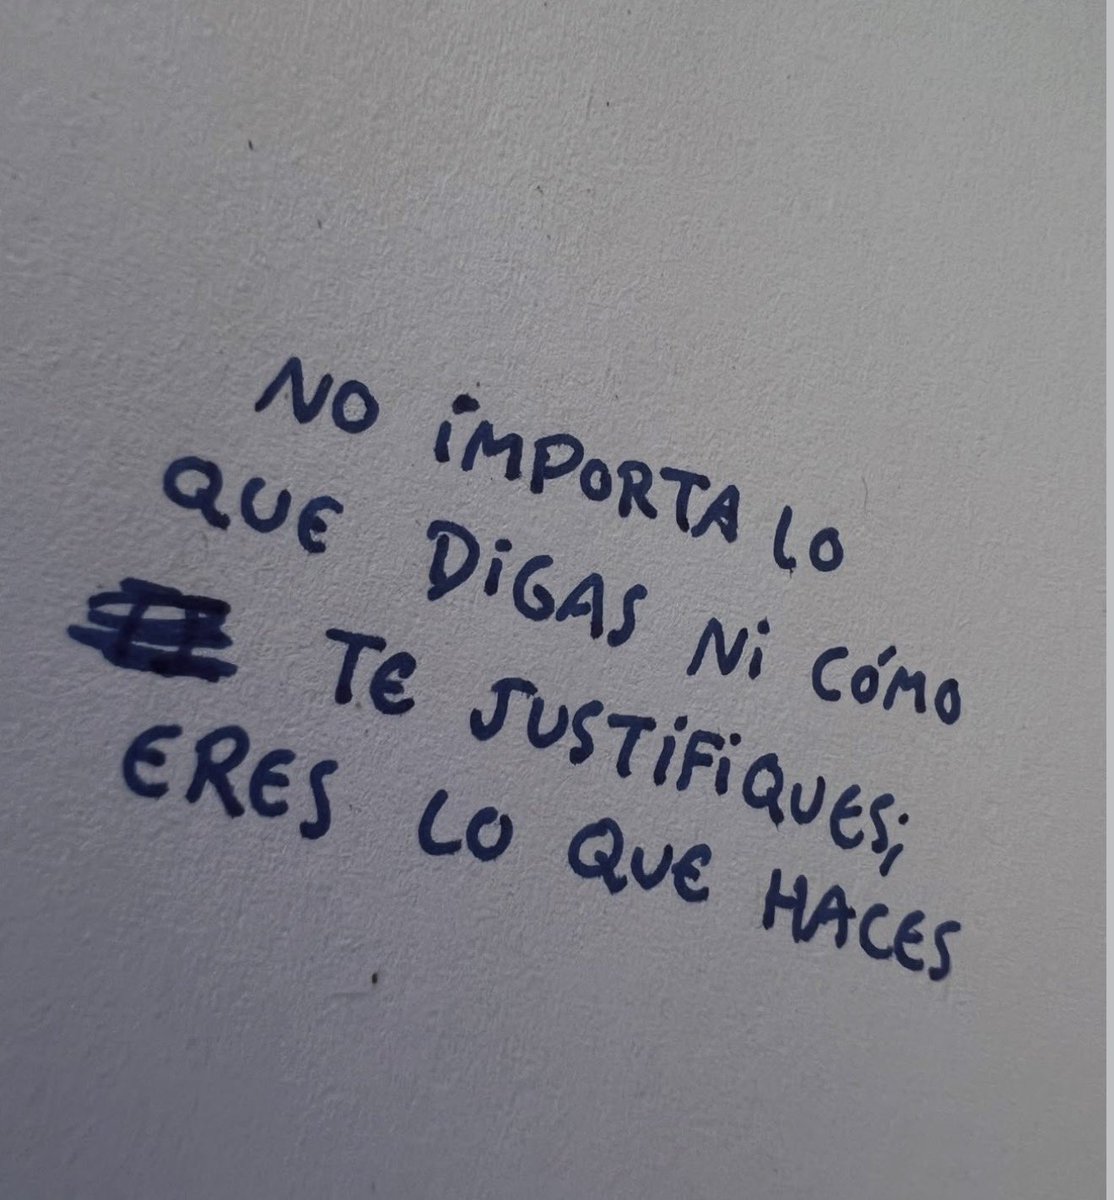 NO IMPORTA LO
QUE DIGAS NI CÓMO
TE JUSTIFIQUES;
ERES LO QUE HACES